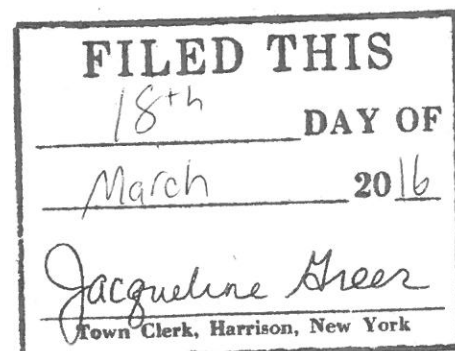 FILED THIS
18th DAY OF
March 2016
Jacqueline Greer
Town Clerk, Harrison, New York